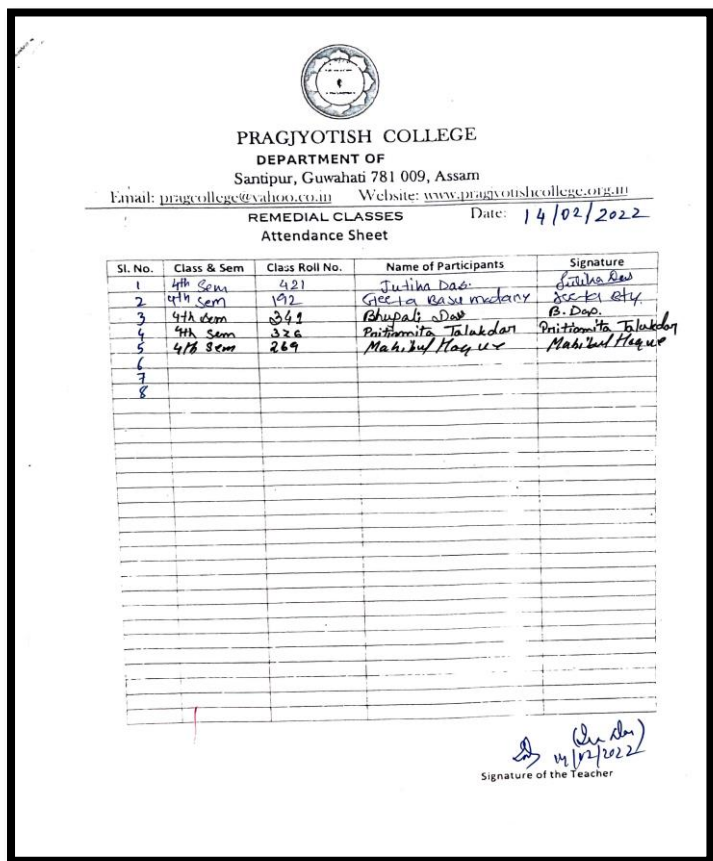 PRAGJYOTISH COLLEGE
DEPARTMENT OF
Santipur, Guwahati 781 009, Assam
Email: pragcollege@yahoo.co.in Website: www.pragjyotishcollege.org.in
REMEDIAL CLASSES Date: 14/02/2022
Attendance Sheet
Sl. No. Class & Sem Class Roll No. Name of Participants Signature
1 4th Sem 421 Jutika Das. Jutika Das
2 4th Sem 192 Geeta Basumatary Geeta
3 4th Sem 341 Bhupali Das B. Das.
4 4th Sem 326 Pritismita Talukdar Pritismita Talukdar
5 4th Sem 269 Mahibul Haque Mahibul Haque
6
7
8
14/02/2022
Signature of the Teacher